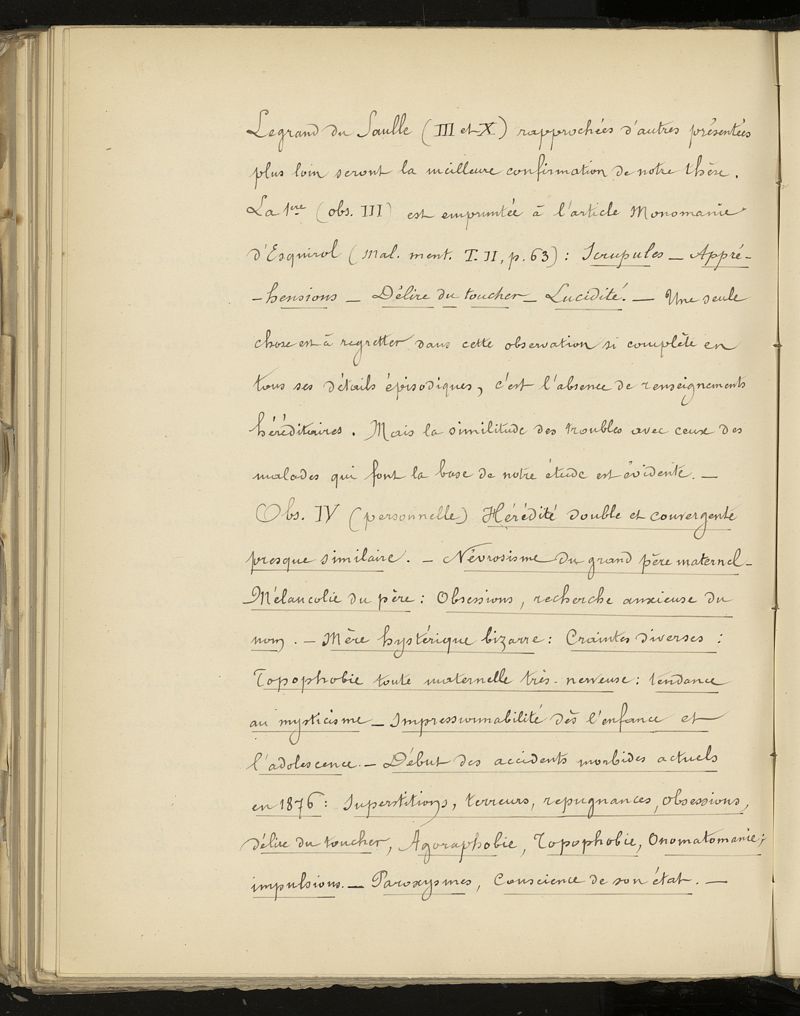 Legrand du Saulle (III et X) rapprochées d'autres présentées
plus loin seront la meilleure confirmation de notre thèse.
La 1ère (obs. III) est empruntée à l'article Monomanie
d'Esquirol (Mal. ment. T. II, p. 63) : Scrupules — Appré-
-hensions — Délire du toucher — Lucidité. — Une seule
chose est à regretter dans cette observation si complète en
tous ses détails épisodiques, c'est l'absence de renseignements
héréditaires. Mais la similitude des troubles avec ceux des
malades qui font la base de notre étude est évidente. —
Obs. IV (personnelle) Hérédité double et convergente
presque similaire. — Névrosisme du grand père maternel —
Mélancolie du père : Obsessions, recherche anxieuse du
nom. — Mère hystérique bizarre : Craintes diverses :
Topophobie toute maternelle très-nerveuse : tendance
au mysticisme — Impressionnabilité dès l'enfance et
l'adolescence. — Début des accidents morbides actuels
en 1876 : Superstitions, terreurs, repugnances, obsessions,
délire du toucher, Agoraphobie, Topophobie, Onomatomanie ;
impulsions. — Paroxysmes, Conscience de son état. —